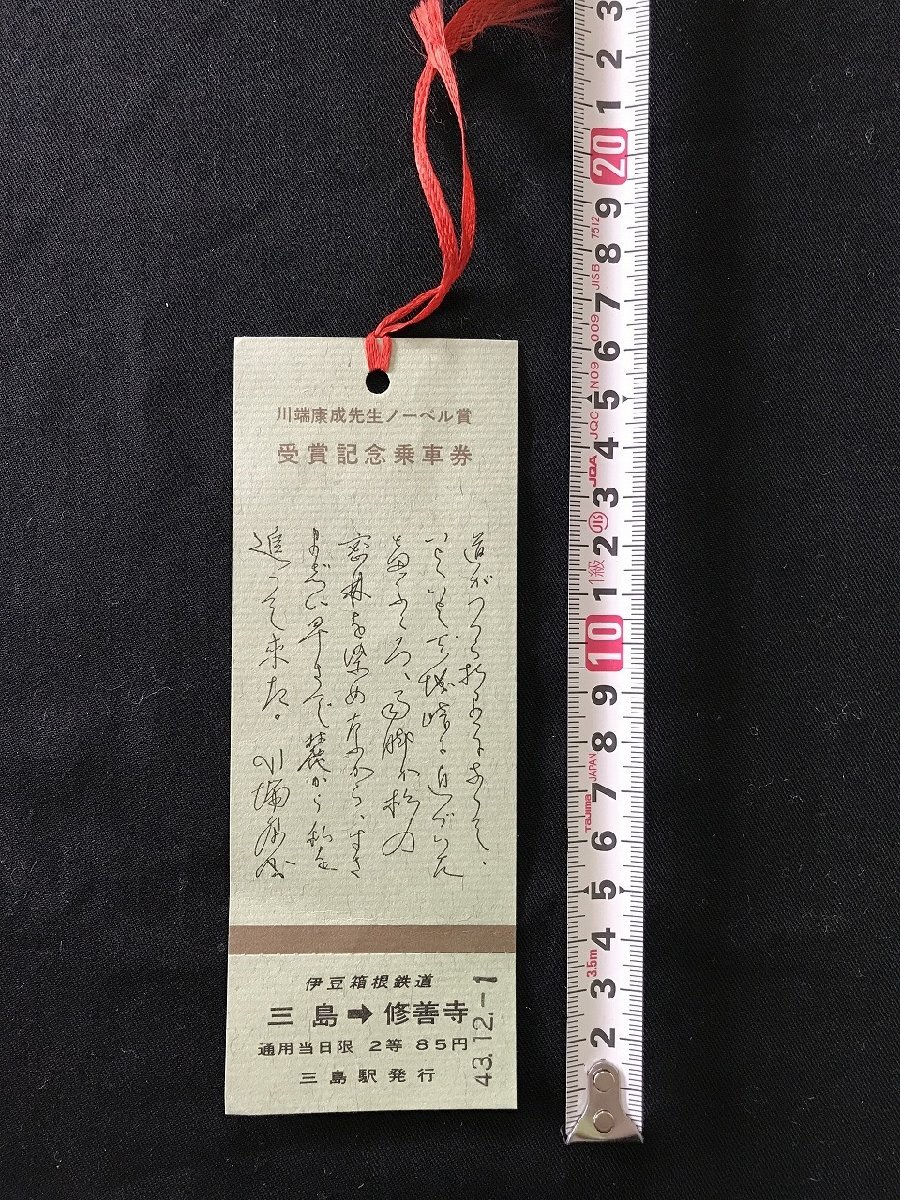 川端康成先生ノーベル賞
受賞記念乗車券
道がつづら折りになって、
いよいよ天城峠に近づいた
と思ふころ、雨脚が杉の
密林を染めながら、すさ
まじい早さで麓から私を
追って来た。 川端康成
伊豆箱根鉄道
三島➡修善寺
通用当日限 2等 85円
三島駅発行
43.12.-1
3
2
1
20
9
8
7
6
5
4
3
2
1
10
9
8
7
6
5
4
3
2
7512
JISB
NO9 009
JQC
JQA
JIS
1級
JAPAN
Tajima
3.5m